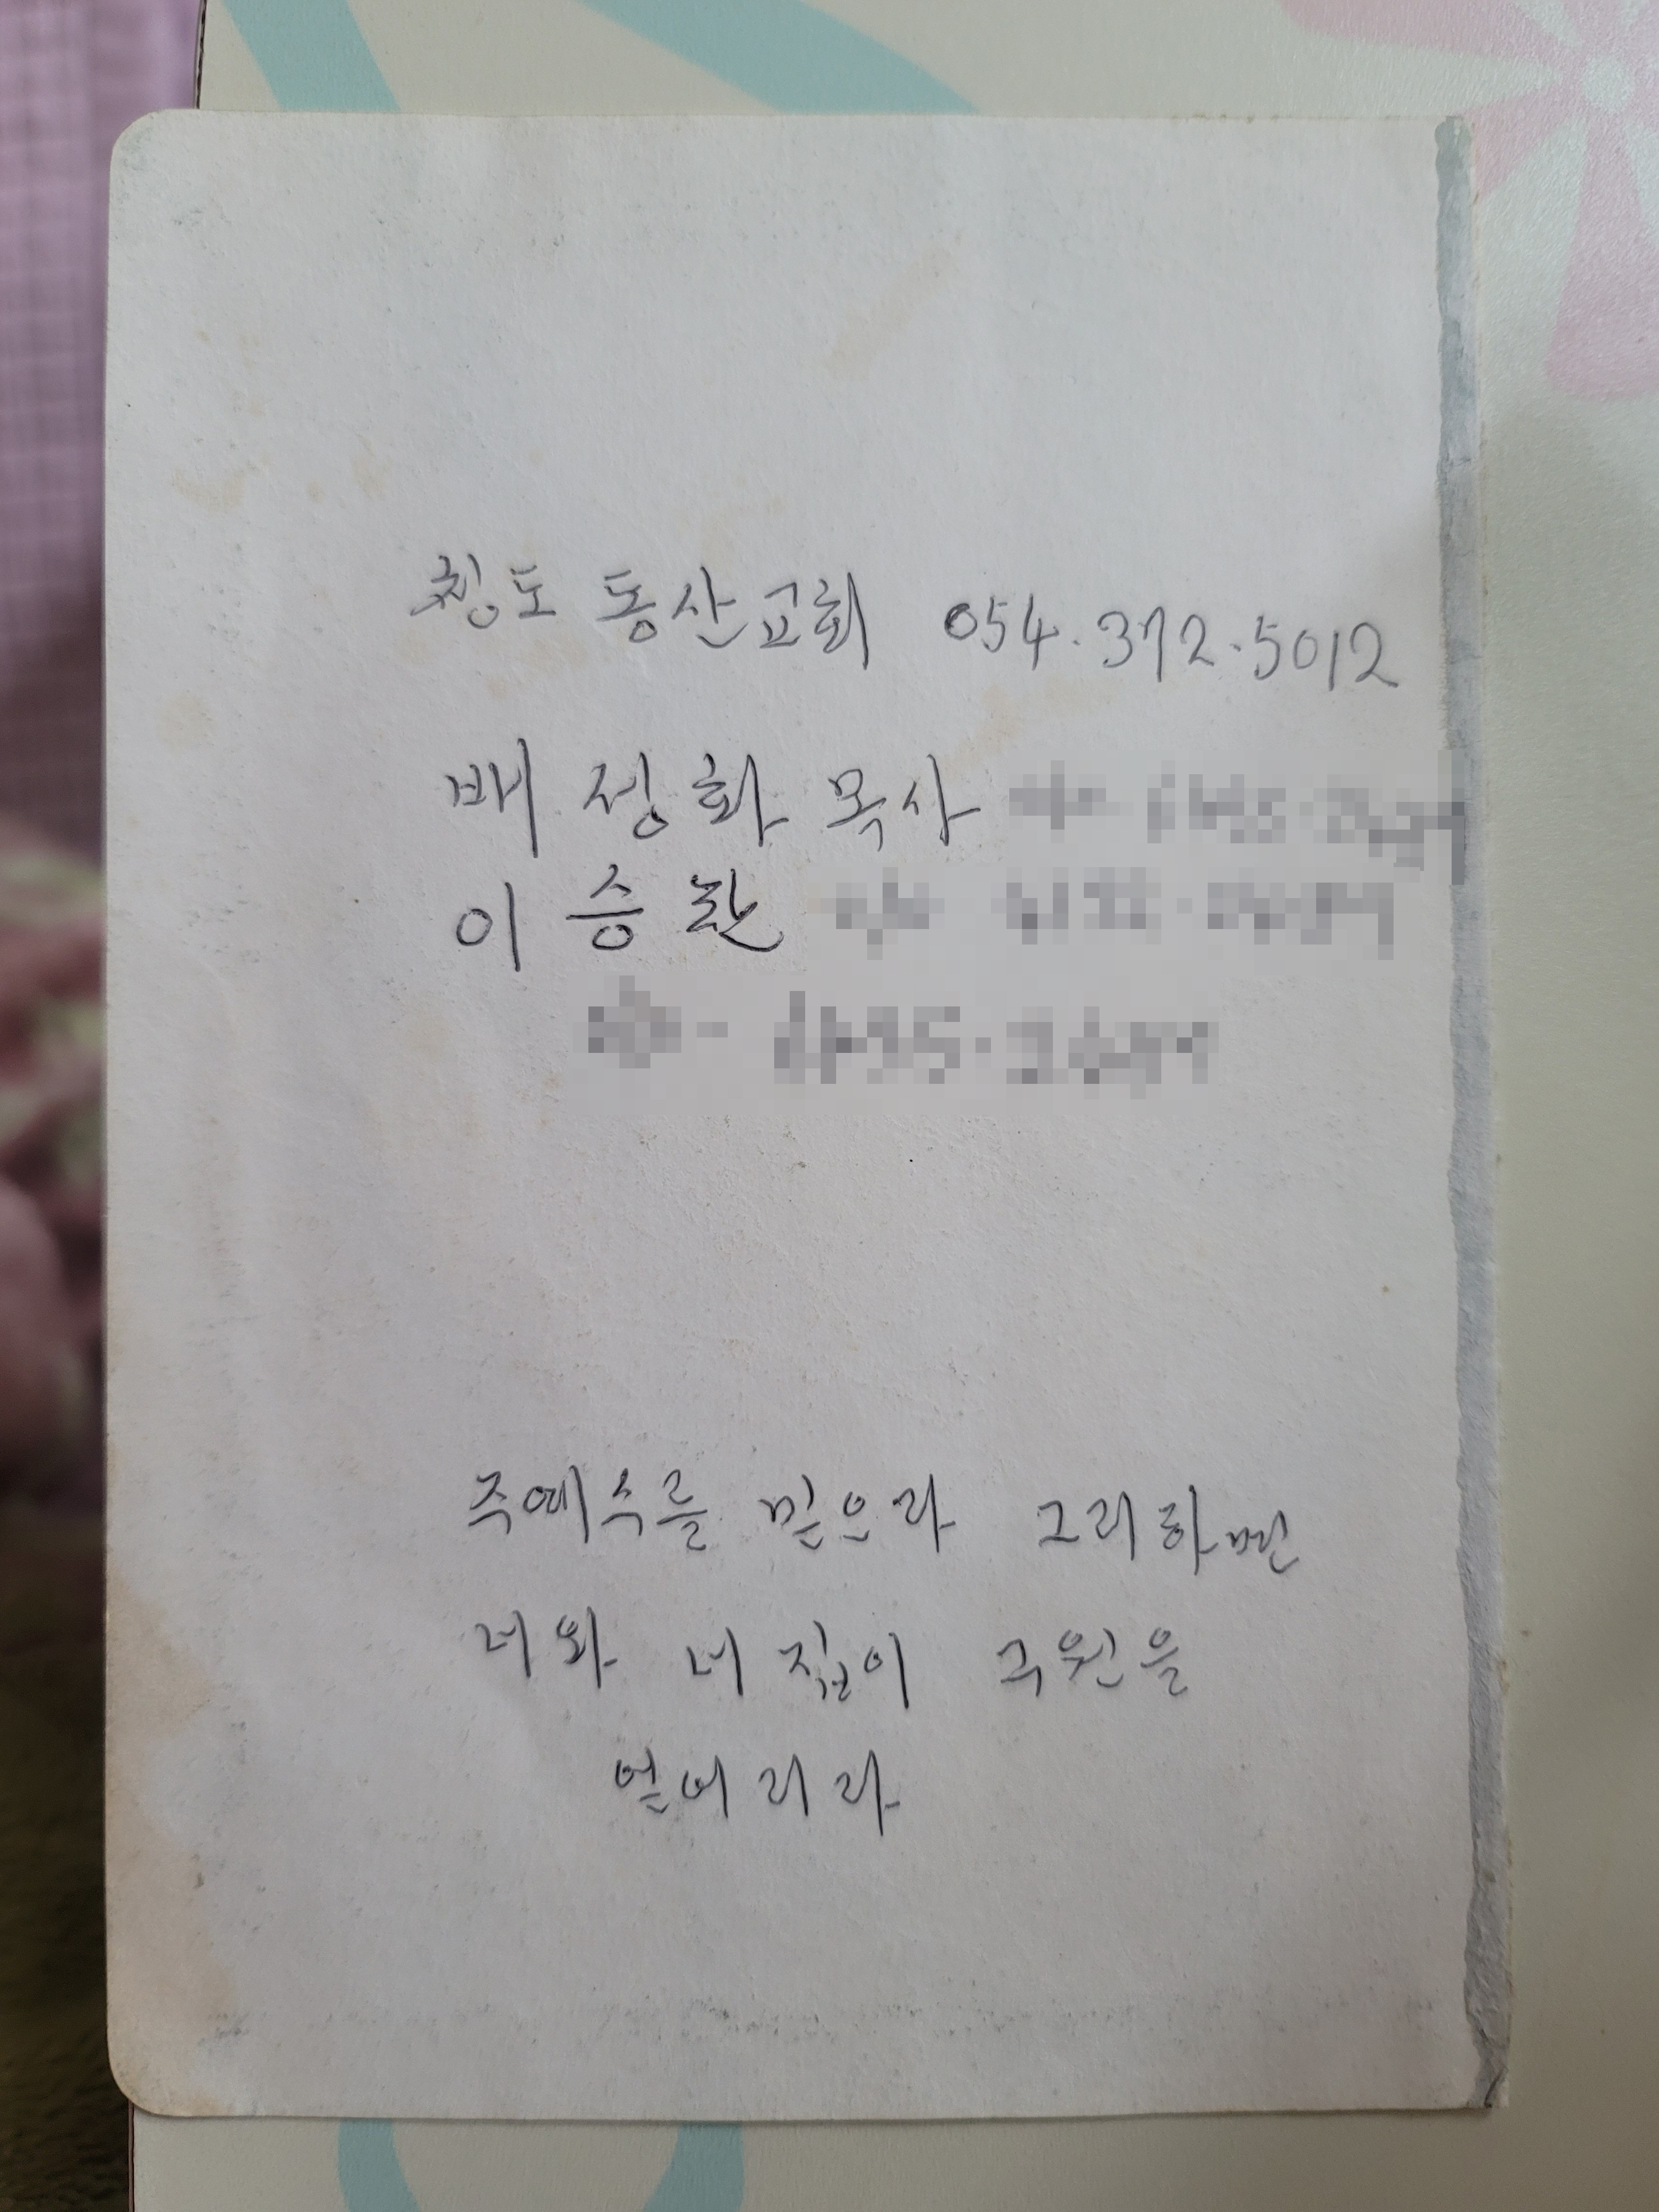 청도 동산교회 054.372.5012
배정화 목사
이승환
주예수를 믿으라 그리하면
너와 네 집이 구원을
얻어리라